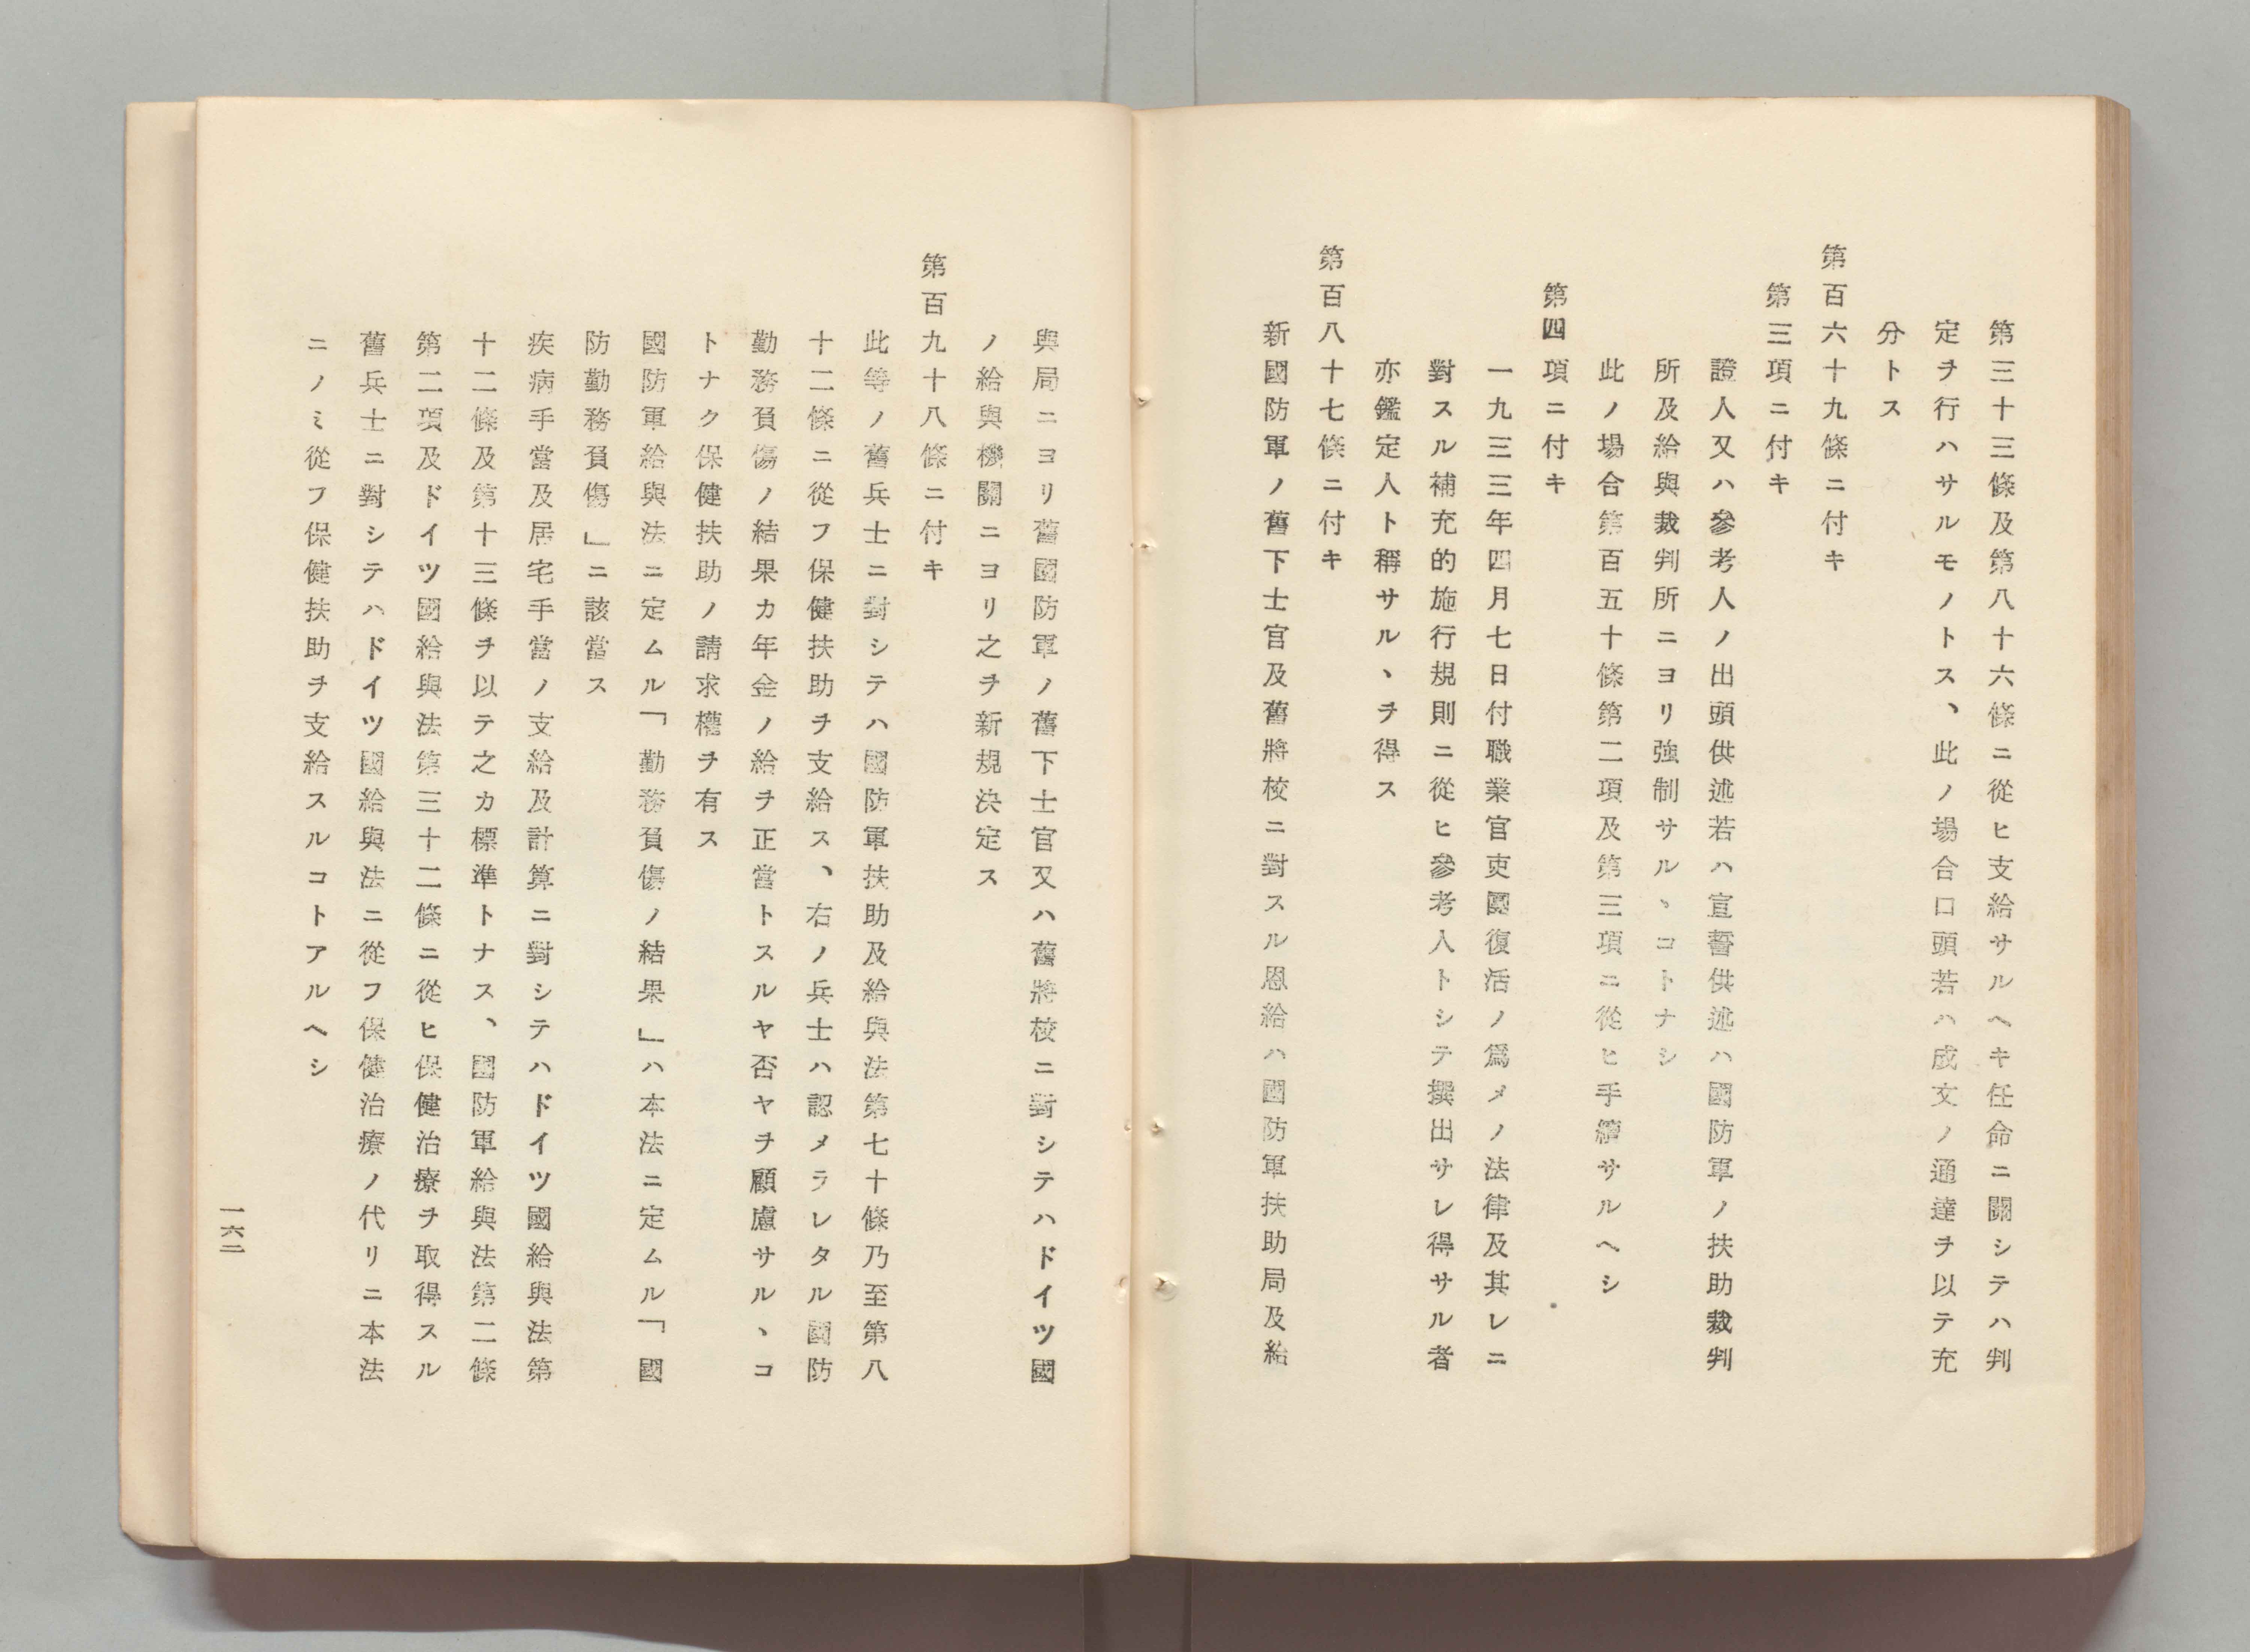 第三十三條及第八十六條ニ從ヒ支給サルヘキ任命ニ關シテハ判
定ヲ行ハサルモノトス、此ノ場合口頭若ハ成文ノ通達ヲ以テ充
分トス
第百六十九條ニ付キ
第三項ニ付キ
證人又ハ參考人ノ出頭供述若ハ宣誓供述ハ國防軍ノ扶助裁判
所及給與裁判所ニヨリ強制サルヽコトナシ
此ノ場合第百五十條第二項及第三項ニ從ヒ手續サルヘシ
第四項ニ付キ
一九三三年四月七日付職業官吏團復活ノ爲メノ法律及其レニ
對スル補充的施行規則ニ從ヒ參考人トシテ撰出サレ得サル者
亦鑑定人ト稱サルヽヲ得ス
第百八十七條ニ付キ
新國防軍ノ舊下士官及舊將校ニ對スル恩給ハ國防軍扶助局及給
與局ニヨリ舊國防軍ノ舊下士官又ハ舊將校ニ對シテハドイツ國
ノ給與機關ニヨリ之ヲ新規決定ス
第百九十八條ニ付キ
此等ノ舊兵士ニ對シテハ國防軍扶助及給與法第七十條乃至第八
十二條ニ從フ保健扶助ヲ支給ス、右ノ兵士ハ認メラレタル國防
勤務負傷ノ結果カ年金ノ給ヲ正當トスルヤ否ヤヲ顧慮サルヽコ
トナク保健扶助ノ請求權ヲ有ス
國防軍給與法ニ定ムル「勤務負傷ノ結果」ハ本法ニ定ムル「國
防勤務負傷」ニ該當ス
疾病手當及居宅手當ノ支給及計算ニ對シテハドイツ國給與法第
十二條及第十三條ヲ以テ之カ標準トナス、國防軍給與法第二條
第二項及ドイツ國給與法第三十二條ニ從ヒ保健治療ヲ取得スル
舊兵士ニ對シテハドイツ國給與法ニ從フ保健治療ノ代リニ本法
ニノミ從フ保健扶助ヲ支給スルコトアルヘシ
一六二